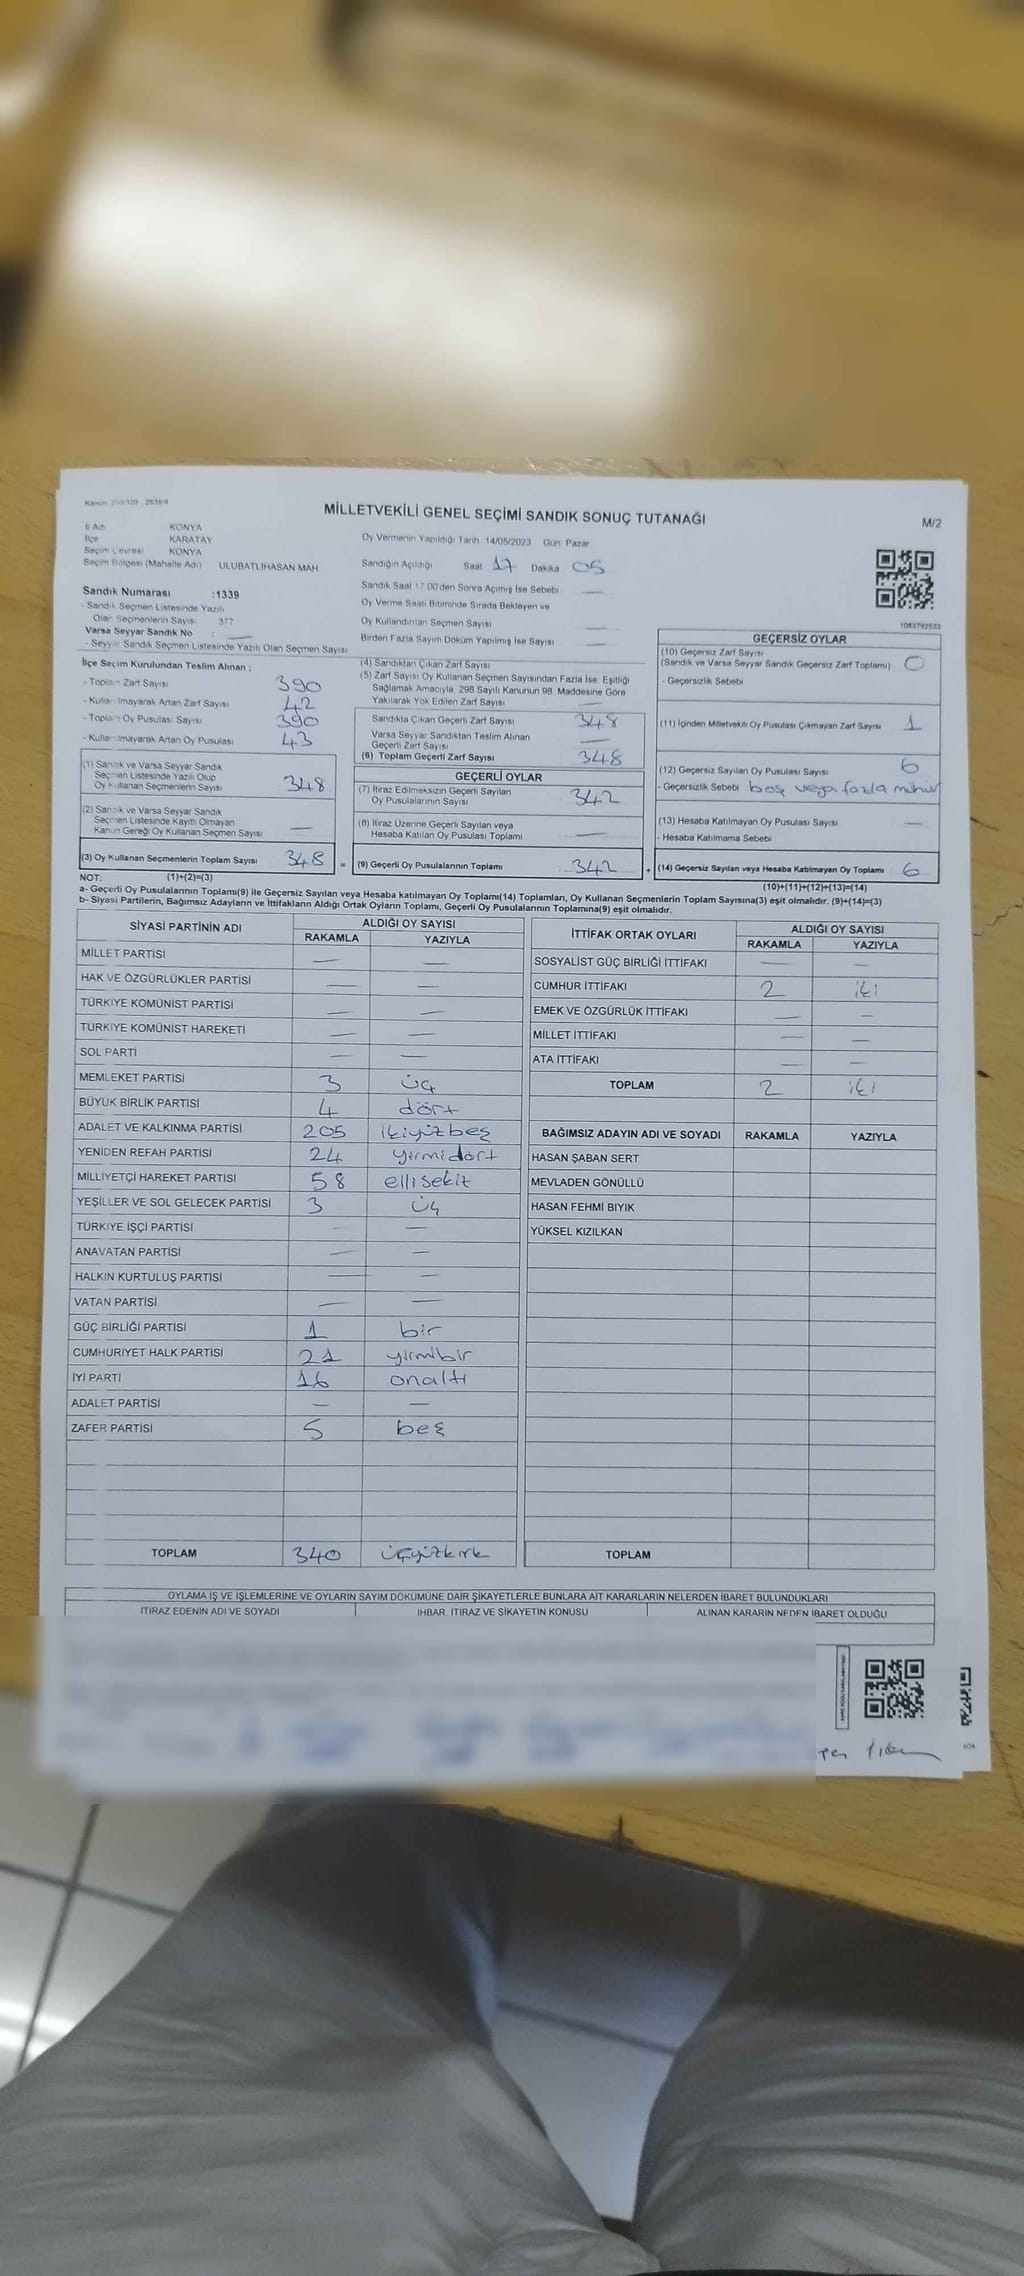 MİLLETVEKİLİ GENEL SEÇİMİ SANDIK SONUÇ TUTANAĞI
M/2
İl Adı KONYA
İlçe KARATAY
Seçim Çevresi KONYA
Seçim Bölgesi (Mahalle Adı) ULUBATLIHASAN MAH
Sandık Numarası :1339
- Sandık Seçmen Listesinde Yazılı
Olan Seçmenlerin Sayısı 377
Varsa Seyyar Sandık No : —
- Seyyar Sandık Seçmen Listesinde Yazılı Olan Seçmen Sayısı
Oy Vermenin Yapıldığı Tarih 14/05/2023 Gün Pazar
Sandığın Açıldığı Saat 17 Dakika 05
Sandık Saat 17.00'den Sonra Açımış İse Sebebi —
Oy Verme Saati Bitiminde Sırada Bekleyen ve
Oy Kullandırılan Seçmen Sayısı —
Birden Fazla Sayım Döküm Yapılmış İse Sayısı —
1083792533
İlçe Seçim Kurulundan Teslim Alınan :
- Toplam Zarf Sayısı 390
- Kullanılmayarak Artan Zarf Sayısı 42
- Toplam Oy Pusulası Sayısı 390
- Kullanılmayarak Artan Oy Pusulası 43
(1) Sandık ve Varsa Seyyar Sandık
Seçmen Listesinde Yazılı Olup
Oy Kullanan Seçmenlerin Sayısı 348
(2) Sandık ve Varsa Seyyar Sandık
Seçmen Listesinde Kayıtlı Olmayan
Kanun Gereği Oy Kullanan Seçmen Sayısı —
(3) Oy Kullanan Seçmenlerin Toplam Sayısı 348 =
(4) Sandıktan Çıkan Zarf Sayısı
(5) Zarf Sayısı Oy Kullanan Seçmen Sayısından Fazla İse, Eşitliği
Sağlamak Amacıyla, 298 Sayılı Kanunun 98. Maddesine Göre
Yakılarak Yok Edilen Zarf Sayısı —
Sandıkta Çıkan Geçerli Zarf Sayısı 348
Varsa Seyyar Sandıktan Teslim Alınan
Geçerli Zarf Sayısı —
(6) Toplam Geçerli Zarf Sayısı 348
GEÇERLİ OYLAR
(7) İtiraz Edilmeksizin Geçerli Sayılan
Oy Pusulalarının Sayısı 342
(8) İtiraz Üzerine Geçerli Sayılan veya
Hesaba Katılan Oy Pusulası Toplamı —
(9) Geçerli Oy Pusulalarının Toplamı : 342 +
GEÇERSİZ OYLAR
(10) Geçersiz Zarf Sayısı
(Sandık ve Varsa Seyyar Sandık Geçersiz Zarf Toplamı) 0
- Geçersizlik Sebebi
(11) İçinden Milletvekili Oy Pusulası Çıkmayan Zarf Sayısı 1
(12) Geçersiz Sayılan Oy Pusulası Sayısı 6
- Geçersizlik Sebebi boş veya fazla mühür
(13) Hesaba Katılmayan Oy Pusulası Sayısı —
- Hesaba Katılmama Sebebi
(14) Geçersiz Sayılan veya Hesaba Katılmayan Oy Toplamı 6
NOT: (1)+(2)=(3) (10)+(11)+(12)+(13)=(14)
a- Geçerli Oy Pusulalarının Toplamı(9) ile Geçersiz Sayılan veya Hesaba katılmayan Oy Toplamı(14) Toplamları, Oy Kullanan Seçmenlerin Toplam Sayısına(3) eşit olmalıdır. (9)+(14)=(3)
b- Siyasi Partilerin, Bağımsız Adayların ve İttifakların Aldığı Ortak Oyların Toplamı, Geçerli Oy Pusulalarının Toplamına(9) eşit olmalıdır.
SİYASİ PARTİNİN ADI ALDIĞI OY SAYISI
RAKAMLA YAZIYLA
MİLLET PARTİSİ — —
HAK VE ÖZGÜRLÜKLER PARTİSİ — —
TÜRKİYE KOMÜNİST PARTİSİ — —
TÜRKİYE KOMÜNİST HAREKETİ — —
SOL PARTİ — —
MEMLEKET PARTİSİ 3 üç
BÜYÜK BİRLİK PARTİSİ 4 dört
ADALET VE KALKINMA PARTİSİ 205 ikiyüzbeş
YENİDEN REFAH PARTİSİ 24 yirmidört
MİLLİYETÇİ HAREKET PARTİSİ 58 ellisekiz
YEŞİLLER VE SOL GELECEK PARTİSİ 3 üç
TÜRKİYE İŞÇİ PARTİSİ — —
ANAVATAN PARTİSİ — —
HALKIN KURTULUŞ PARTİSİ — —
VATAN PARTİSİ — —
GÜÇ BİRLİĞİ PARTİSİ 1 bir
CUMHURİYET HALK PARTİSİ 21 yirmibir
İYİ PARTİ 16 onaltı
ADALET PARTİSİ — —
ZAFER PARTİSİ 5 beş
TOPLAM 340 üçyüzkırk
İTTİFAK ORTAK OYLARI ALDIĞI OY SAYISI
RAKAMLA YAZIYLA
SOSYALİST GÜÇ BİRLİĞİ İTTİFAKI — —
CUMHUR İTTİFAKI 2 iki
EMEK VE ÖZGÜRLÜK İTTİFAKI — —
MİLLET İTTİFAKI — —
ATA İTTİFAKI — —
TOPLAM 2 iki
BAĞIMSIZ ADAYIN ADI VE SOYADI RAKAMLA YAZIYLA
HASAN ŞABAN SERT
MEVLADEN GÖNÜLLÜ
HASAN FEHMİ BIYIK
YÜKSEL KIZILKAN
TOPLAM
OYLAMA İŞ VE İŞLEMLERİNE VE OYLARIN SAYIM DÖKÜMÜNE DAİR ŞİKAYETLERLE BUNLARA AİT KARARLARIN NELERDEN İBARET BULUNDUKLARI
İTİRAZ EDENİN ADI VE SOYADI İHBAR, İTİRAZ VE ŞİKAYETİN KONUSU ALINAN KARARIN NEDEN İBARET OLDUĞU